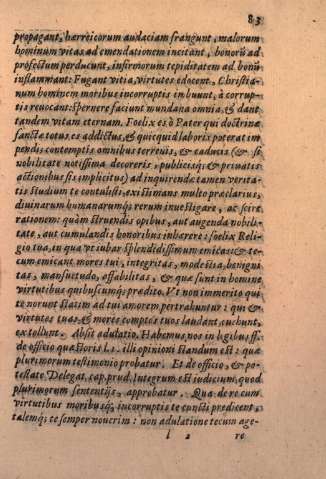 83
propagant, hærreicorum audaciam frangunt, malorum
hominum vitas ad emendationem incitant, bonorũ ad
profectum perducunt, infirmorum tepiditatem ad bonũ
inflammant: Fugant vitia, virtutes edocent, Christia-
num hominem moribus incorruptis imbuunt, à corrup-
tis reuocant: spernere faciunt mundana omnia, & dant
tandem vitam eternam. Fœlix es ò Pater qui doctrinæ
sanctæ totus es addictus, & quicquid laboris poterat im
pendi; contemptis omnibus terrenis, & caducis (& si
nobilitate notissima decoreris, publicisq; & priuatis
actionibus sis implicitus) ad inquirendæ tamen verita-
tis studium te contulisti, existimans multo præclarius,
diuinarum humanarumq; rerum inuestigare, ac scire
rationem: quàm struendis opibus, aut augenda nobili-
tate, aut cumulandis honoribus inhærere: fœlix Reli-
gio tua, in qua vt iubar splendidissimum emicas: & te-
cum emicant mores tui, integritas, modestia, benigni
tas, mansuetudo, affabilitas, & quæ sunt in homine
virtutibus quibuscumq; prædito. Vt non immerito qui
te norunt statim ad tui amorem pertrahuntur: qui &
virtutes tuas & mores comptos tuos laudant, euehunt,
extollunt. Absit adulatio. Habemus nos in legibus, ff.
de officio quæstoris l. 1. illi opinioni standum est: quæ
plurimorum testimonio probatur. Et de officio, & po-
testate Delegat. cap. prud. Integrum est iudicium, quod
plurimorum sententijs, approbatur. Qua de re cum
virtutibus moribusq; incorruptis te cuncti prædicent,
talemq; te semper nouerim: non adulatione tecum age-
l 2 re